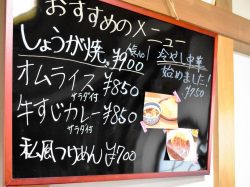 おすすめのメニュー
しょうが焼 ¥900
オムライス ¥850
サラダ付
牛すじカレー ¥850
サラダ付
私風つけめん ¥700
冷やし中華
始めました!
¥750